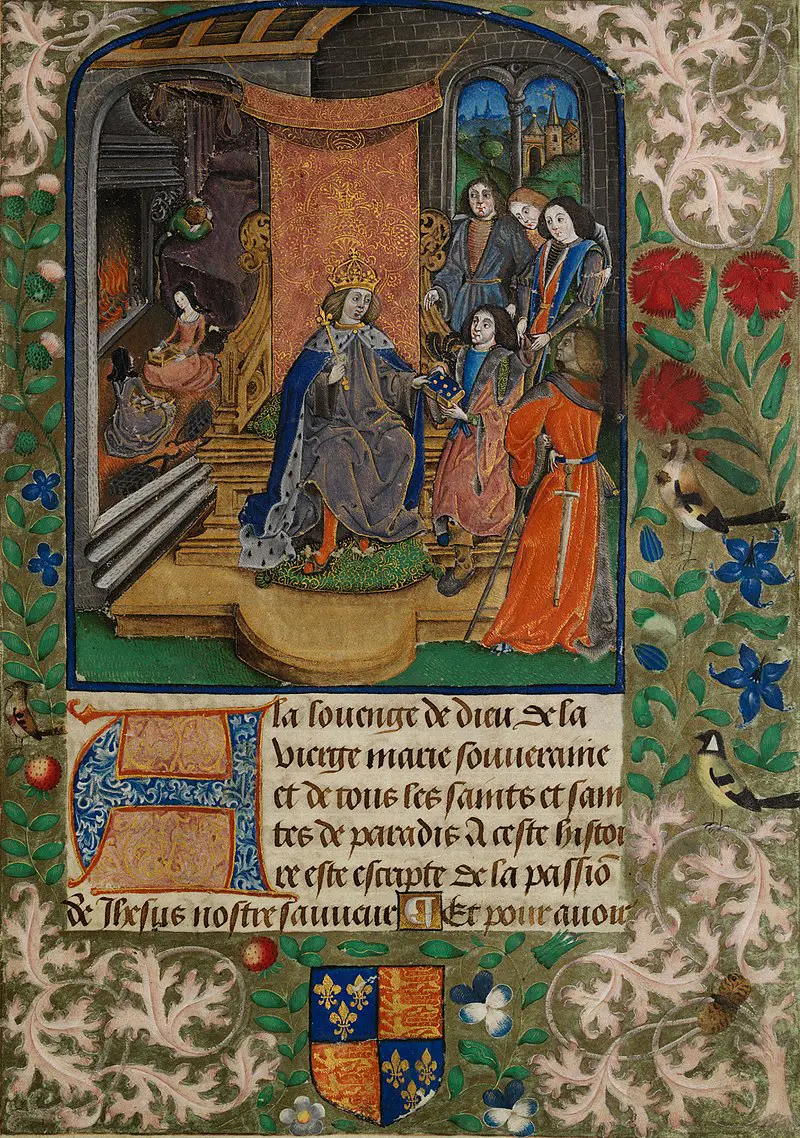 A la louenge de dieu de la
vierge marie souueraine
et de tous les saints et sain
tes de paradis A ceste histoi
re este escripte de la passiõ
de Ihesus nostre sauueur ¶ Et pour auoir